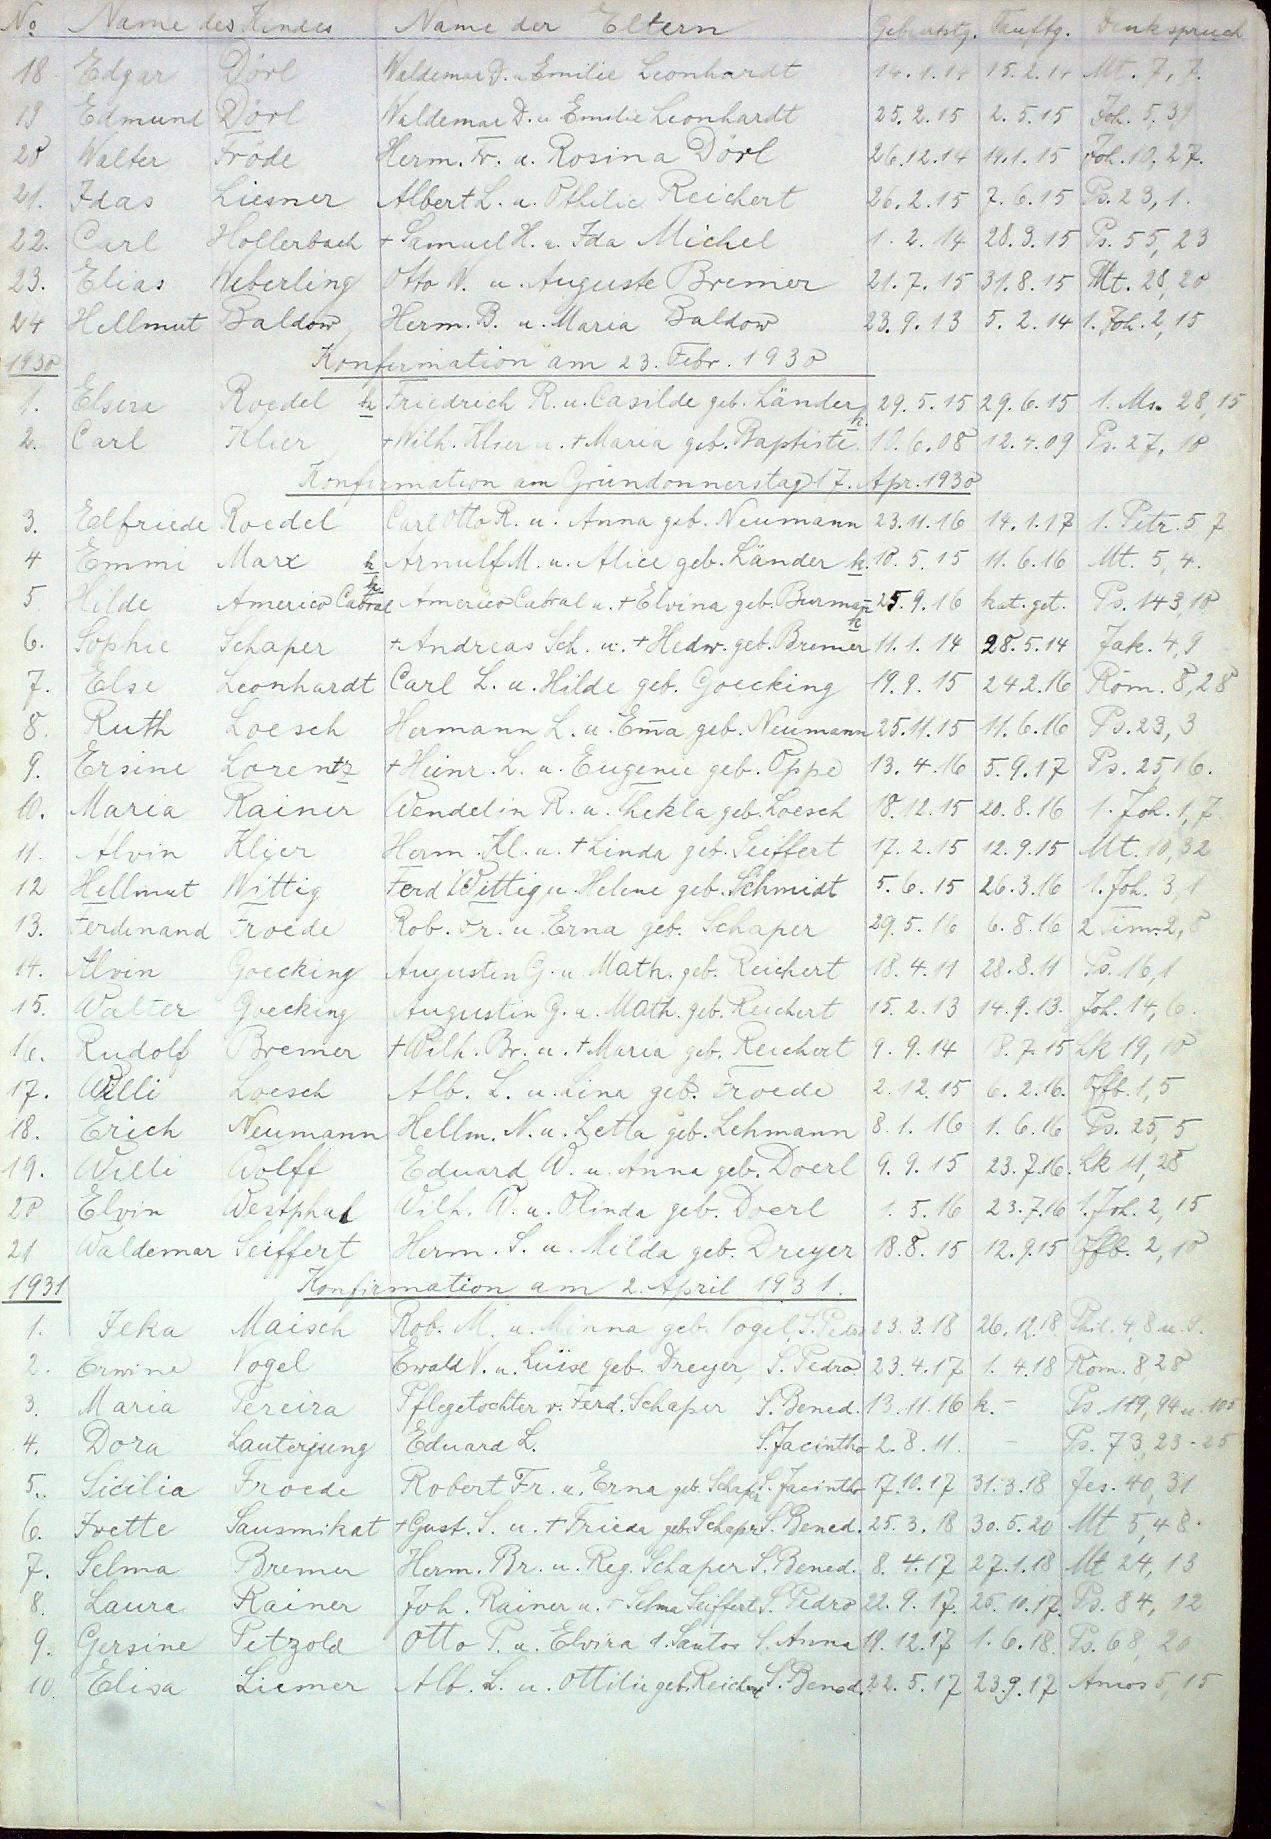 No Name des Kindes Name der Eltern Geburtstg. Tauftg. Denkspruch
18 Edgar Dörl Waldemar D. u. Emilie Leonhardt 14.1.14 15.2.14 Mt. 7,7.
19 Edmund Dörl Waldemar D. u. Emilie Leonhardt 25.2.15 2.5.15 Joh. 5,39
20 Walter Fröde Herm. Fr. u. Rosina Dörl 26.12.14 19.1.15 Joh. 10,27.
21. Idas Liesner Albert L. u. Othilie Reichert 26.2.15 7.6.15 Ps. 23,1.
22. Carl Hollerbach + Samuel H. u. Ida Michel 1.2.14 28.3.15 Ps. 55,23
23. Elias Weberling Otto W. u. Auguste Bremer 21.7.15 31.8.15 Mt. 28,20
24 Hellmut Baldow Herm. B. u. Maria Baldow 23.9.13 5.2.14 1. Joh. 2,15
1930 Konfirmation am 23. Febr. 1930
1. Elsira Roedel k Friedrich R. u. Casilde geb. Länder k. 29.5.15 29.6.15 1. Ms. 28,15
2. Carl Klier + Wilh. Klier u. + Maria geb. Baptiste. 10.6.08 12.4.09 Ps. 27,10
Konfirmation am Gründonnerstag 17. Apr. 1930
3. Edfriede Roedel Carl Otto R. u. Anna geb. Neumann 23.11.16 14.1.17 1. Petr. 5,7
4 Emmi Marx k Arnulf M. u. Alice geb. Länder k. 10.5.15 11.6.16 Mt. 5,4.
5 Hilde Americo Cabral k Americo Cabral u. + Elvina geb. Burman k 25.9.16 kat. get. Ps. 143,10
6. Sophie Schaper + Andreas Sch. u. + Hedw. geb. Bremer 11.1.14 28.5.14 Jak. 4,9
7. Else Leonhardt Carl L. u. Hilde geb. Goecking 19.9.15 24.2.16 Röm. 8,28
8. Ruth Loesch Hermann L. u. Em̄a geb. Neumann 25.11.15 11.6.16 Ps. 23,3
9. Ersine Lorentz + Heinr. L. u. Eugenie geb. Oppe 13.4.16 5.9.17 Ps. 25,16.
10. Maria Rainer Wendelin R. u. Thekla geb. Loesch 18.12.15 20.8.16 1. Joh. 1,7.
11. Alvin Klier Herm. Kl. u. + Linda geb. Seiffert 17.2.15 12.9.15 Mt. 10,32
12 Hellmut Wittig Ferd Wittig u. Helene geb. Schmidt 5.6.15 26.3.16 1. Joh. 3,1
13. Ferdinand Froede Rob. Fr. u. Erna geb. Schaper 29.5.16 6.8.16 2 Tim. 2,8
14. Alvin Goecking Augustin G. u. Math. geb. Reichert 18.4.11 28.8.11 Ps. 16,1
15. Walter Goecking Augustin G. u. Math. geb. Reichert 15.2.13 14.9.13. Joh. 14,6.
16. Rudolf Bremer + Wilh. Br. u. + Maria geb. Reichert 9.9.14 8.7.15 Lk 19,10
17. Willi Loesch Alb. L. u. Lina geb. Froede 2.12.15 6.2.16. Offb. 1,5
18. Erich Neumann Hellm. N. u. Letta geb. Lehmann 8.1.16 1.6.16 Ps. 25,5
19. Willi Wolff Eduard W. u. Anna geb. Doerl 9.9.15 23.7.16. Lk 11,28
20 Elvin Westphal Wilh. W. u. Olinda geb. Doerl 1.5.16 23.7.16 1. Joh. 2,15
21 Waldemar Seiffert Herm. S. u. Milda geb. Dreyer 18.8.15 12.9.15 Offb. 2,10
1931 Konfirmation am 2. April 1931.
1. Ilka Maisch Rob. M. u. Minna geb. Vogel, S. Pedro 23.3.18 26.12.18 Phil. 4,8 u. 9.
2. Erwine Vogel Ewald V. u. Luise geb. Dreyer, S. Pedro. 23.4.17 1.4.18 Röm. 8,28
3. Maria Pereira Pflegetochter v. Ferd. Schaper S. Bened. 13.11.16 k. - Ps 119,94 u. 105
4. Dora Lauterjung Eduard L. S. Jacintho 2.8.11. - Ps. 73,23-25
5. Sicilia Froede Robert Fr. u. Erna geb. Schaper S. Jacintho 17.10.17 31.3.18 Jes. 40,31
6. Ivette Sausmikat + Gust. S. u. + Frieda geb. Schaper S. Bened. 25.3.18 30.5.20 Mt 5,48.
7. Selma Bremer Herm. Br. u. Reg. Schaper S. Bened. 8.4.17 27.1.18 Mt 24,13
8. Laura Rainer Joh. Rainer u. + Selma Seiffert S. Pedro 22.9.17. 25.10.17. Ps. 84,12
9. Gersine Petzold Otto P. u. Elvira d. Santos S. Anna 19.12.17 1.6.18. Ps. 68,20
10. Elisa Liesner Alb. L. u. Ottilie geb. Reichert S. Bened. 22.5.17 23.9.17 Amos 5,15